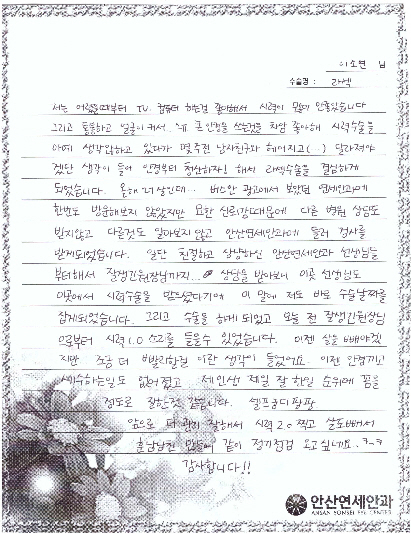 이소연 님
수술명 : 라섹
저는 어렸을때부터 TV, 컴퓨터 하는걸 좋아해서 시력이 많이 안좋았습니다
그리고 통통하고 얼굴이 커서, 큰 안경을 쓰는것을 좋아해 시력수술을
아예 생각안하고 있다가 몇주전 남자친구와 헤어지고(...) 달라져야
겠단 생각이 들어 안경부터 청산하자! 해서 라섹수술을 결심하게
되었습니다. 올해 21살인데... 버스안 광고에서 보았던 연세안과에
한번도 방문해보지 않았지만 묘한 신뢰감때문에 다른 병원 상담도
받지않고 다른것도 알아보지 않고 안산연세안과에 들러 검사를
받게되었습니다. 일단 친절하고 상냥하신 안산연세안과 선생님들
부터해서 원장님까지... 상담을 받아보니 이곳 선생님도
이곳에서 시력수술을 받으셨다기에 이 말에 저도 바로 수술날짜를
잡게되었습니다. 그리고 수술을 하게되었고 오늘 전 원장님
으로부터 시력 1.0 소리를 들을수 있었습니다. 이젠 살을 빼야겠
지만 조금 더 빨리할걸 이란 생각이 들었어요. 이젠 안경끼고
세수하는일도 없어졌고 제 인생 제일 잘 한일 순위에 꼽을
정도로 잘한것 같습니다. 셀프궁디팡팡
앞으로 더 관리 잘해서 시력 2.0 찍고 살도빼서
훈남남친 만들어 같이 정기점검 오고싶네요. ㅋㅋ
감사합니다!!
안산연세안과
ANSAN YONSEI EYE CENTER